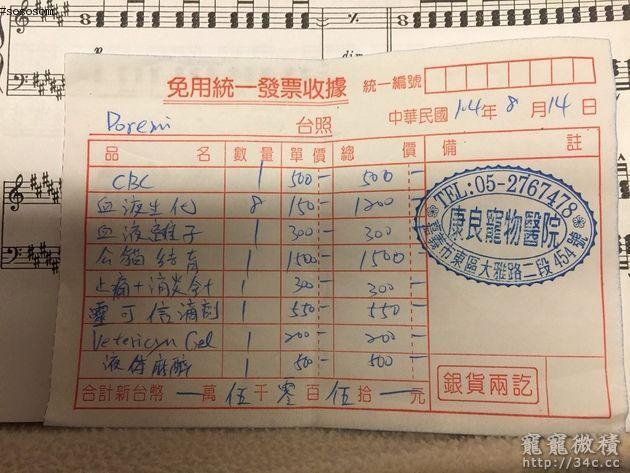 #sorosoro
dim.
免用統一發票收據 統一編號
Doremi 台照 中華民國 104年 8 月 14 日
品 名 數量 單價 總 價 備 註
CBC 1 500- 500 -
血液生化 8 150- 1200 -
血液離子 1 300- 300 -
公貓結育 1 1500- 1500 -
止痛+消炎針 1 300- 300 -
靈可信滴劑 1 550- 550 -
Vetericyn Gel 1 200- 200 -
液体麻醉 1 500- 500 -
合計新台幣 一 萬 伍 千 零 百 伍 拾 一 元
TEL:05-2767478
康良寵物醫院
嘉義市東區大雅路二段454號
銀貨兩訖
寵寵微積
http://34c.cc